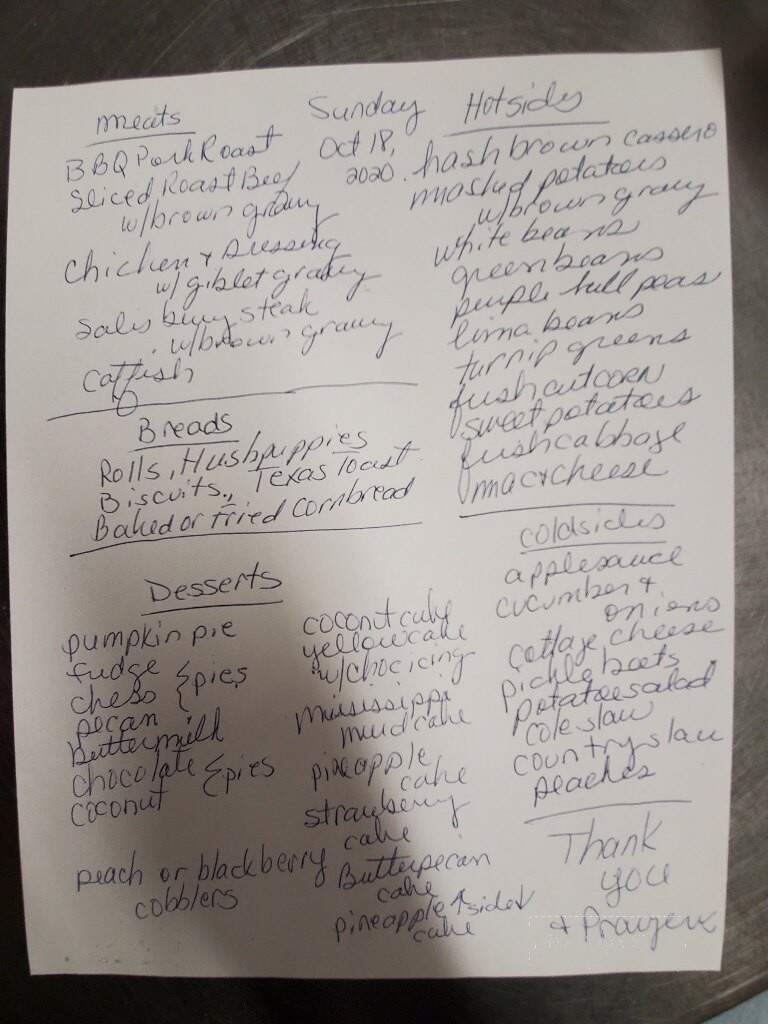 Meats
BBQ Pork Roast
Sliced Roast Beef
w/brown gravy
Chicken + Dressing
w/ giblet gravy
Salisbury steak
w/brown gravy
Catfish
Sunday
Oct 18,
2020
Breads
Rolls, Hushpuppies
Biscuits, Texas Toast
Baked or Fried Cornbread
Desserts
pumpkin pie
fudge
chess { pies
pecan
buttermilk
chocolate { pies
coconut
peach or blackberry
cobblers
coconut cake
yellow cake
w/choc icing
mississippi
mud cake
pineapple
cake
strawberry
cake
Butterpecan
cake
pineapple ↑side↓
cake
Hotsides
hashbrown cassero
mashed potatoes
w/brown gravy
white beans
green beans
purple hull peas
lima beans
turnip greens
fresh cut corn
sweet potatoes
fresh cabbage
mac + cheese
coldsides
applesauce
cucumber +
onions
cottage cheese
pickle beets
potatoe salad
cole slaw
country slaw
peaches
Thank
you
+ Prayers